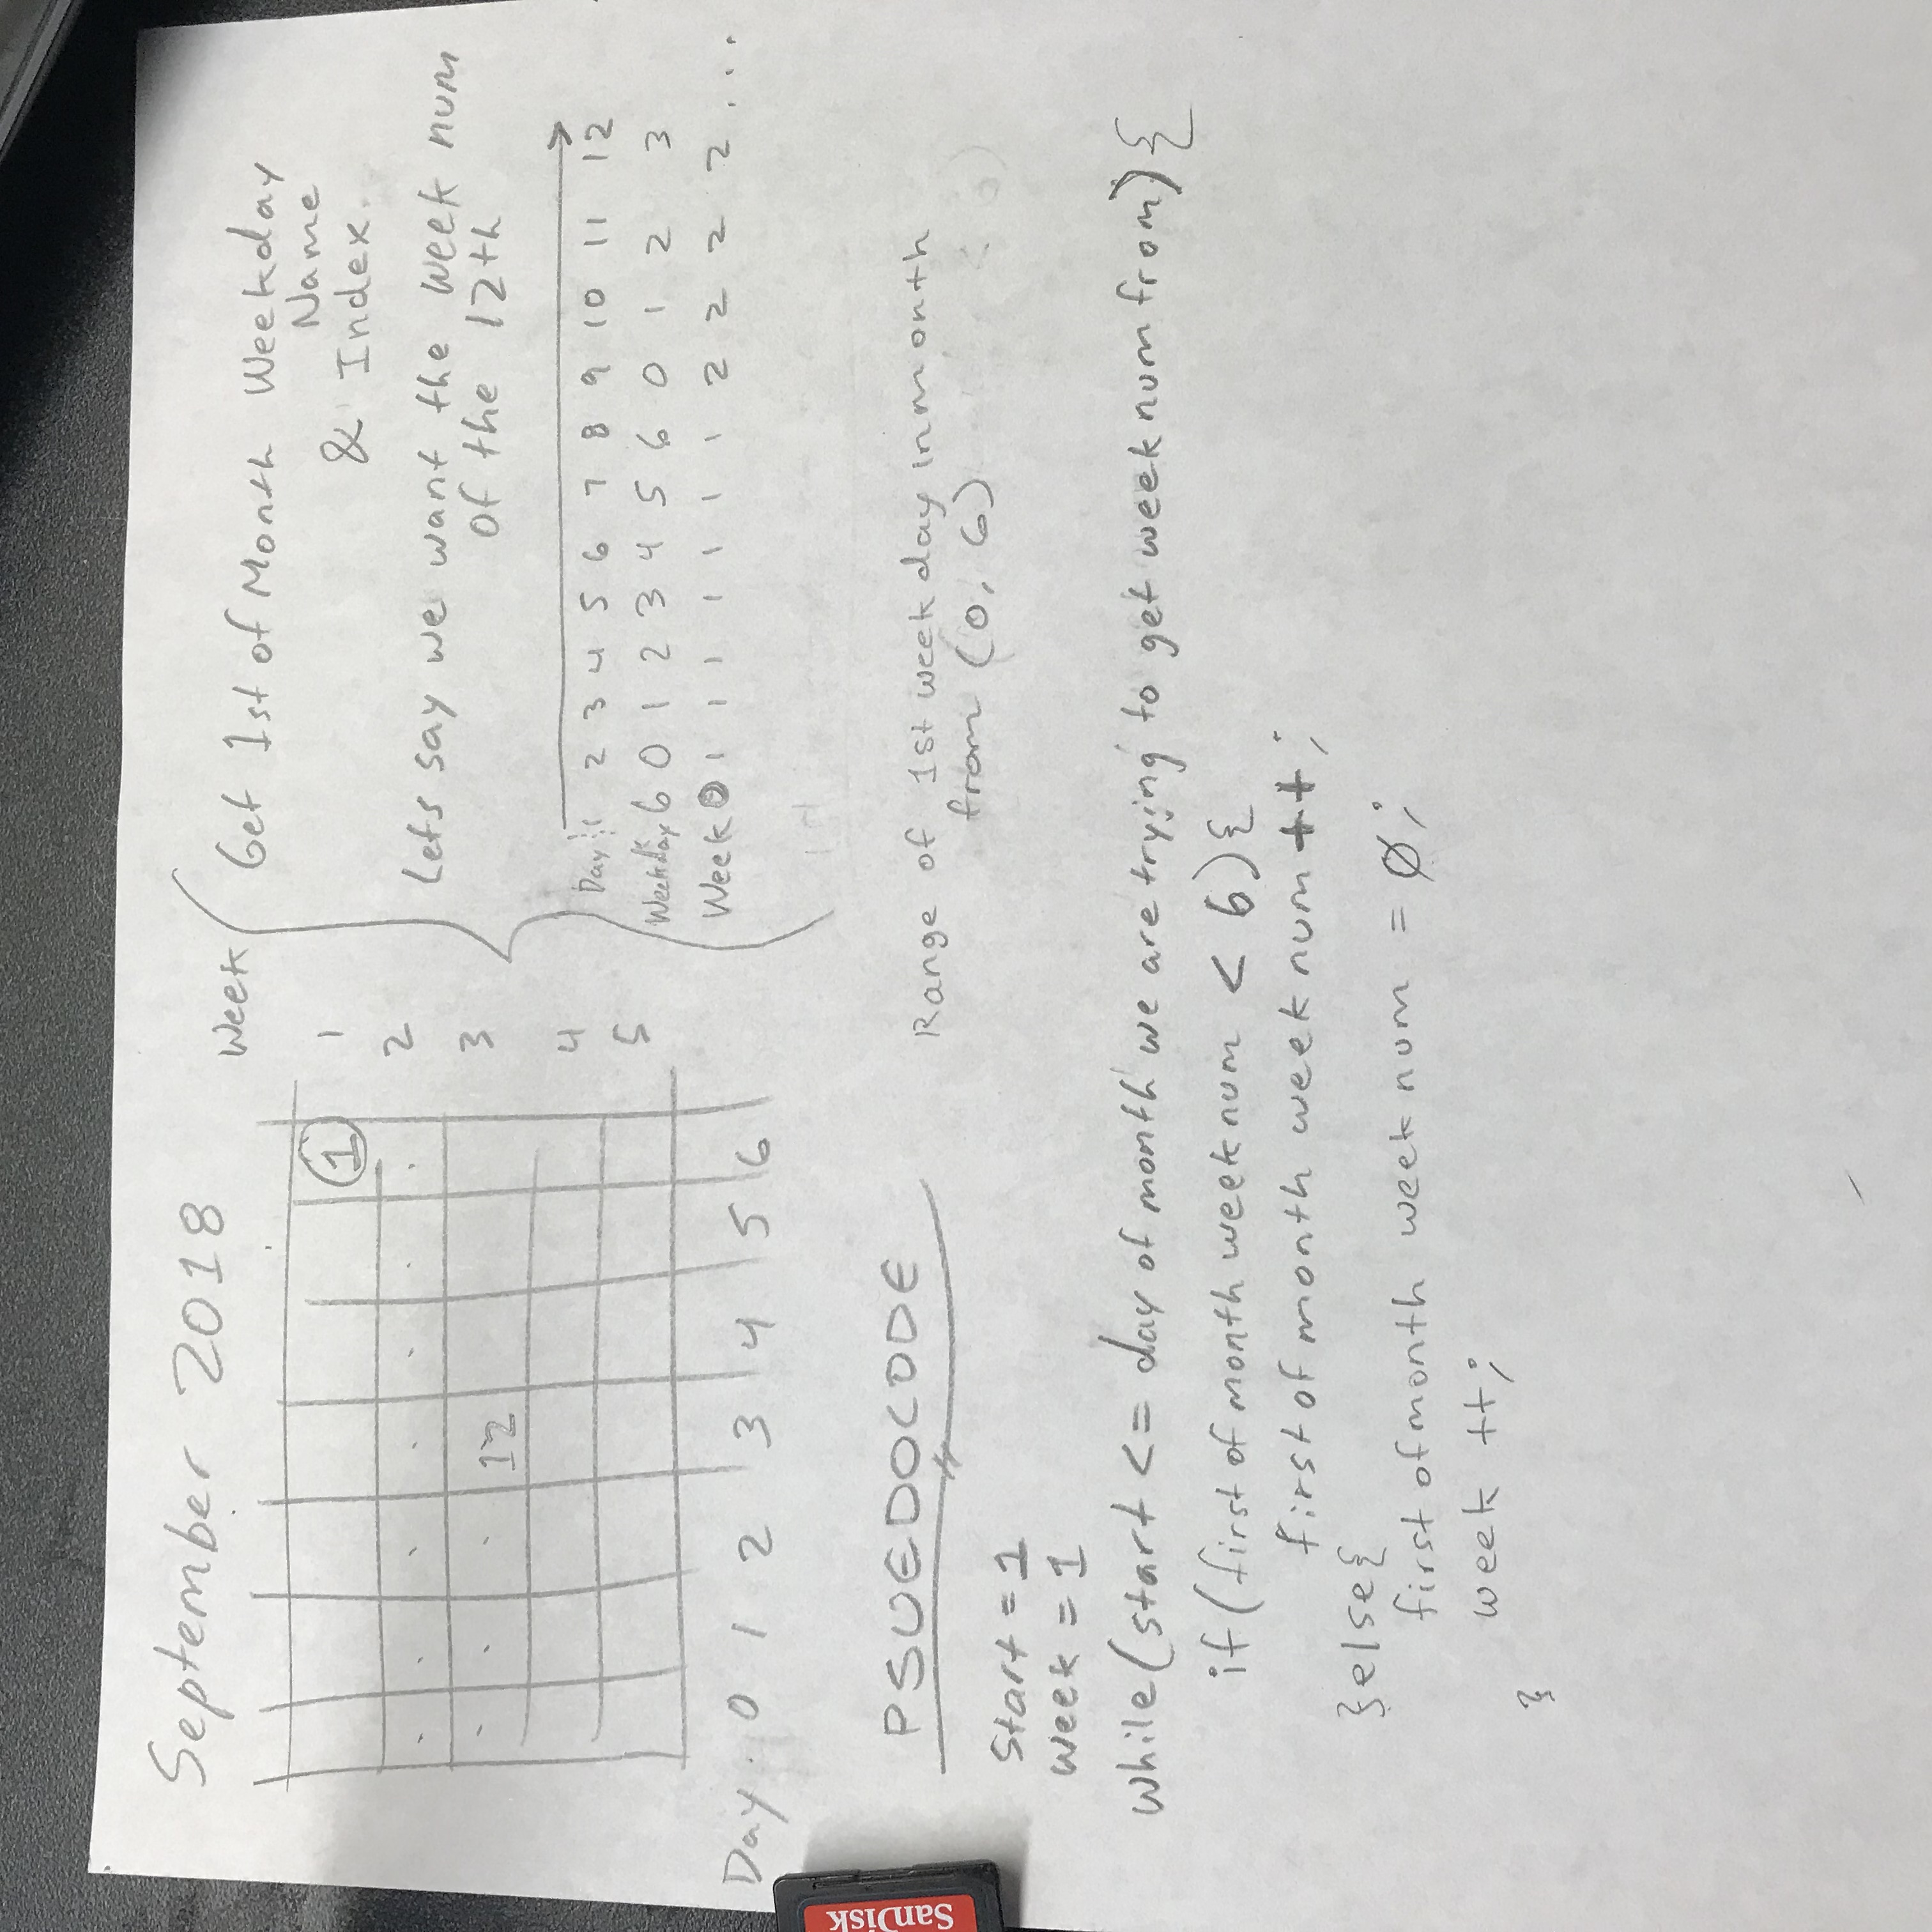 September 2018
Week
1
1
2
12
3
4
5
Day 0 1 2 3 4 5 6
Get 1st of Month Weekday
Name
& Index.
Lets say we want the week num
of the 12th
Day 1 2 3 4 5 6 7 8 9 10 11 12
Weekday 6 0 1 2 3 4 5 6 0 1 2 3
Week 0 1 1 1 1 1 1 1 2 2 2 2 ...
SanDisk
PSUEDOCODE
Range of 1st week day in month
from (0, 6)
Start = 1
Week = 1
while(start <= day of month we are trying to get week num from){
if(first of month week num < 6){
first of month week num ++;
}else{
first of month week num = 0;
week ++;
}